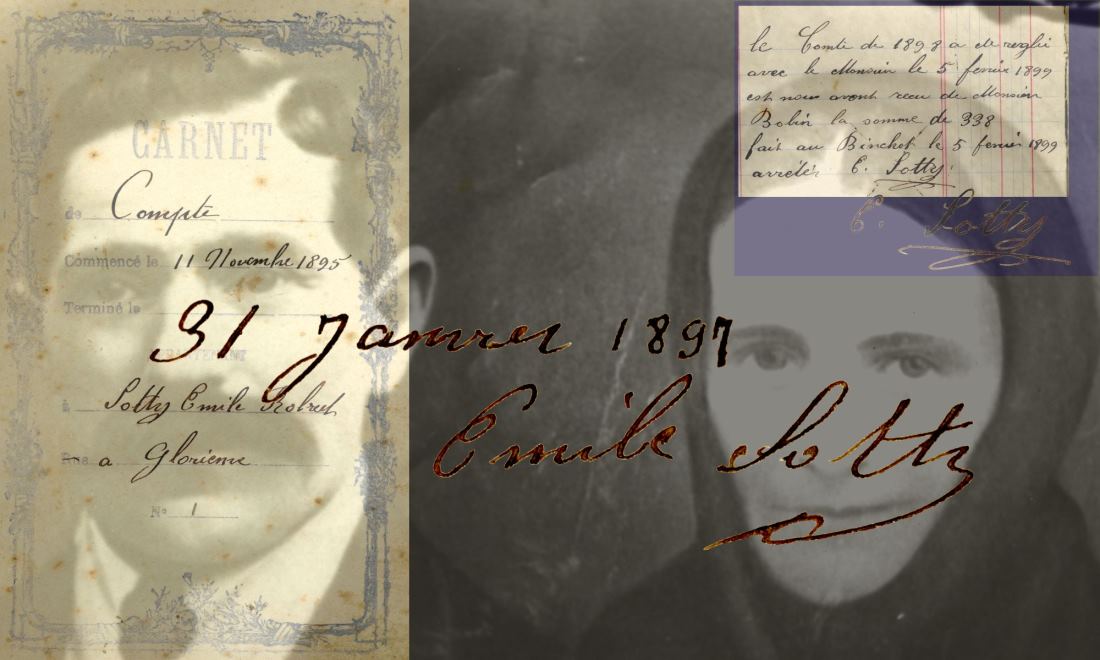 CARNET
de Compte
Commencé le 11 Novembre 1895
Terminé le
à Sotty Emile
Rue a Glorienne
N° 1
31 Janvier 1897
Emile Sotty
le Comte de 1898 a ete reglé
avec le Monsieur le 5 fevrier 1899
est nous avont recu de Monsieur
Bobin la somme de 338
fait au Binchet le 5 fevrier 1899
arrétér E. Sotty.
E. Sotty